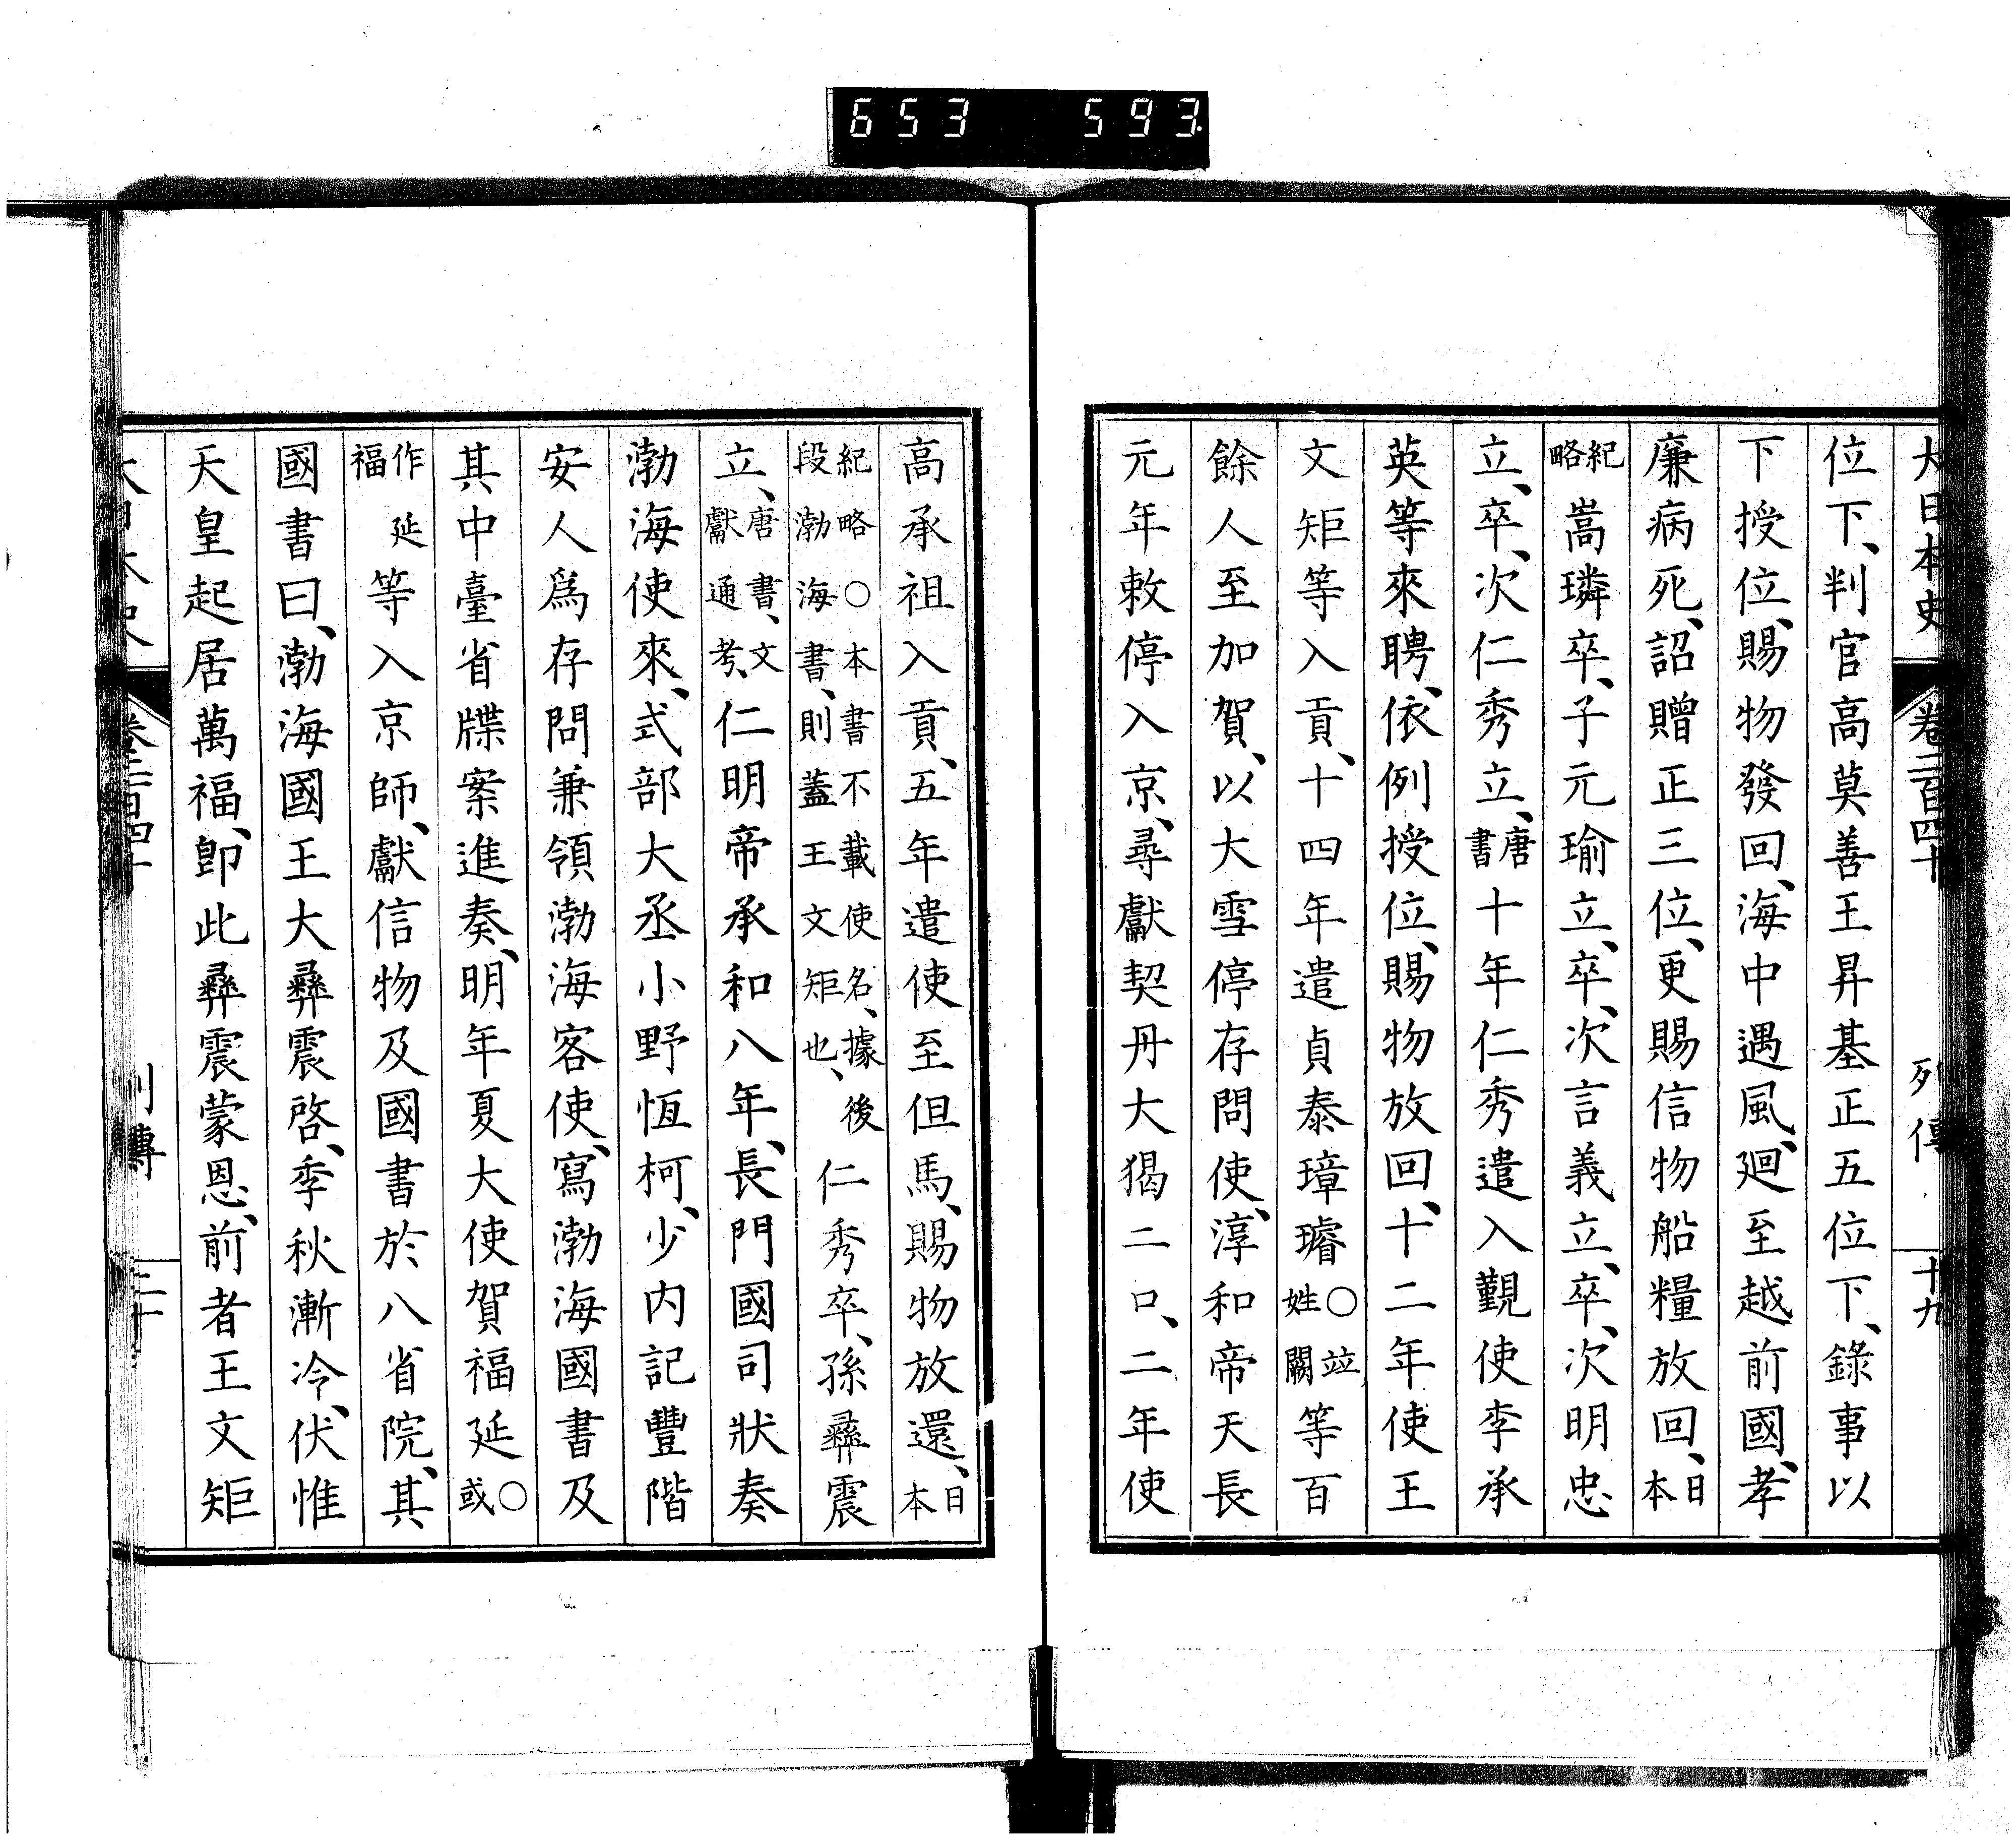 653 593
大日本史 卷二百四十 列傳 十九
位下、判官高莫善王昇基正五位下、錄事以
下授位、賜物發回、海中遇風、廻至越前國、孝
廉病死、詔贈正三位、更賜信物船糧放回、日本
紀略嵩璘卒、子元瑜立、卒、次言義立、卒、次明忠
立、卒、次仁秀立、唐書十年仁秀遣入覲使李承
英等來聘、依例授位、賜物放回、十二年使王
文矩等入貢、十四年遣貞泰璋璿○竝姓闕等百
餘人至加賀、以大雪停存問使、淳和帝天長
元年敕停入京、尋獻契丹大猲二口、二年使
高承祖入貢、五年遣使至但馬、賜物放還、日本
紀略○本書不載使名、據後段渤海書、則蓋王文矩也、仁秀卒、孫彝震
立、唐書、文獻通考、仁明帝承和八年、長門國司狀奏
渤海使來、式部大丞小野恆柯、少內記豐階
安人爲存問兼領渤海客使、寫渤海國書及
其中臺省牒案進奏、明年夏大使賀福延○或
作福延等入京師、獻信物及國書於八省院、其
國書曰、渤海國王大彝震啓、季秋漸冷、伏惟
天皇起居萬福、卽此彝震蒙恩、前者王文矩
卷二百四十 列傳 二十